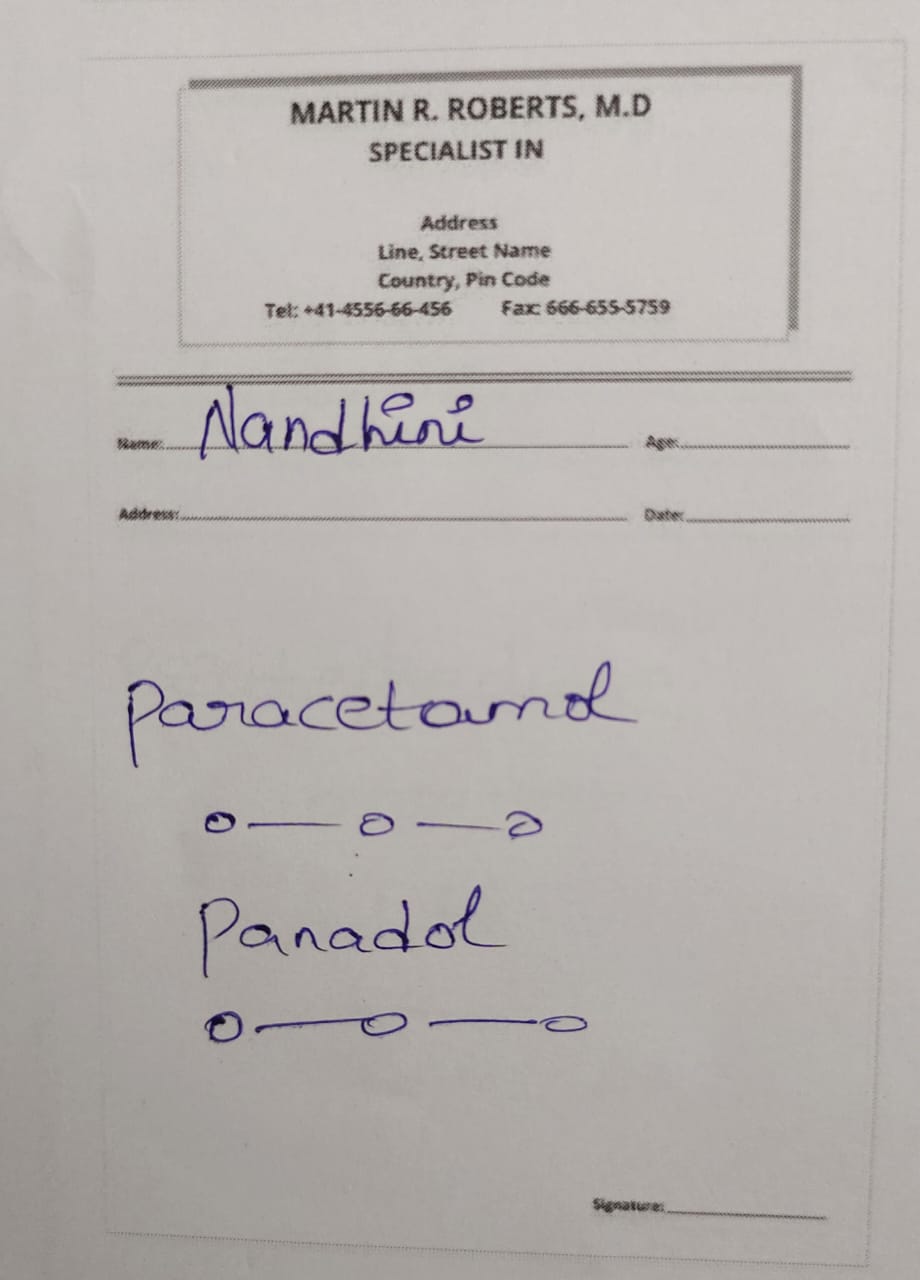 MARTIN R. ROBERTS, M.D
SPECIALIST IN
Address
Line, Street Name
Country, Pin Code
Tel: +41-4556-66-456 Fax: 666-655-5759
Name: Nandhini Age:
Address: Date:
Paracetamol
o — o — o
Panadol
o — o — o
Signature: